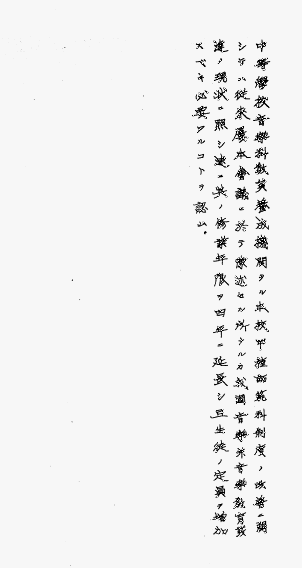 中等學校音樂科敎員養成機關タル本校甲種師範科制度ノ改善ニ關
シテハ從來屢本會議ニ於テ敍述セル所ナルカ我國音樂界音樂敎育發
達ノ現狀ニ照シ速ニ其ノ修業年限ヲ四年ニ延長シ且生徒ノ定員ヲ增加
スベキ必要アルコトヲ認ム。